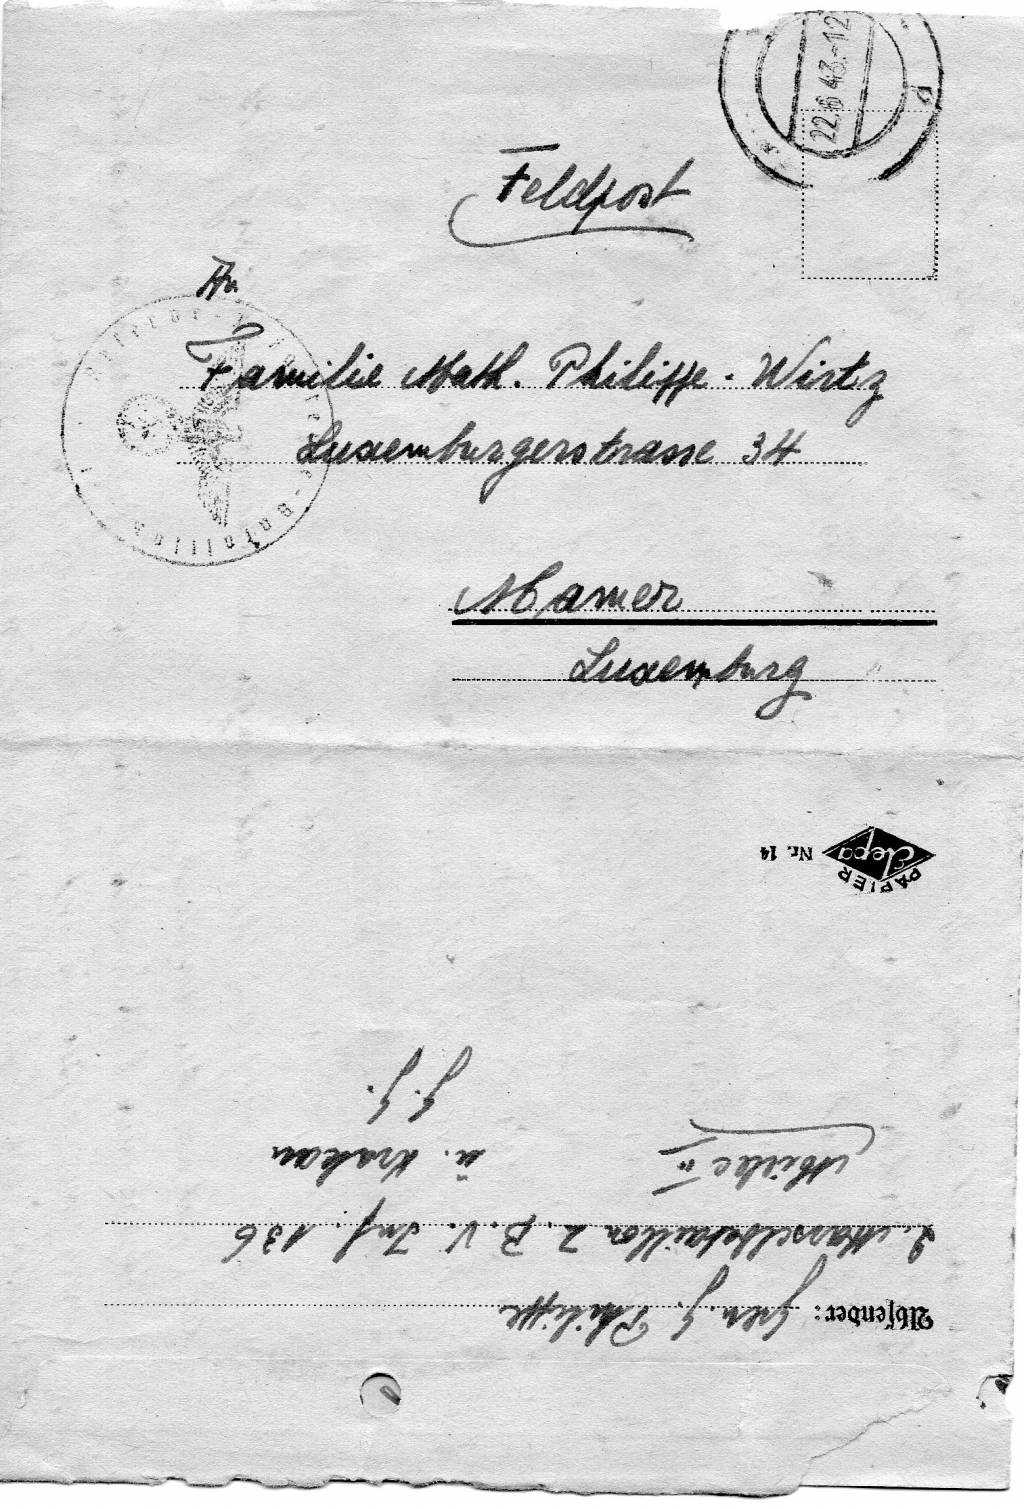 22.6.43.-12
Feldpost
An
Familie Math. Philippe - Wirtz
Luxemburgerstrasse 34
Mamer
Luxemburg
PAPIER
Elepa
Nr. 14
Absender: Gren. J. Philippe
2. Marschbataillon z. B. V. Inf. 136
Mielec II
ü. Krakau
G. G.